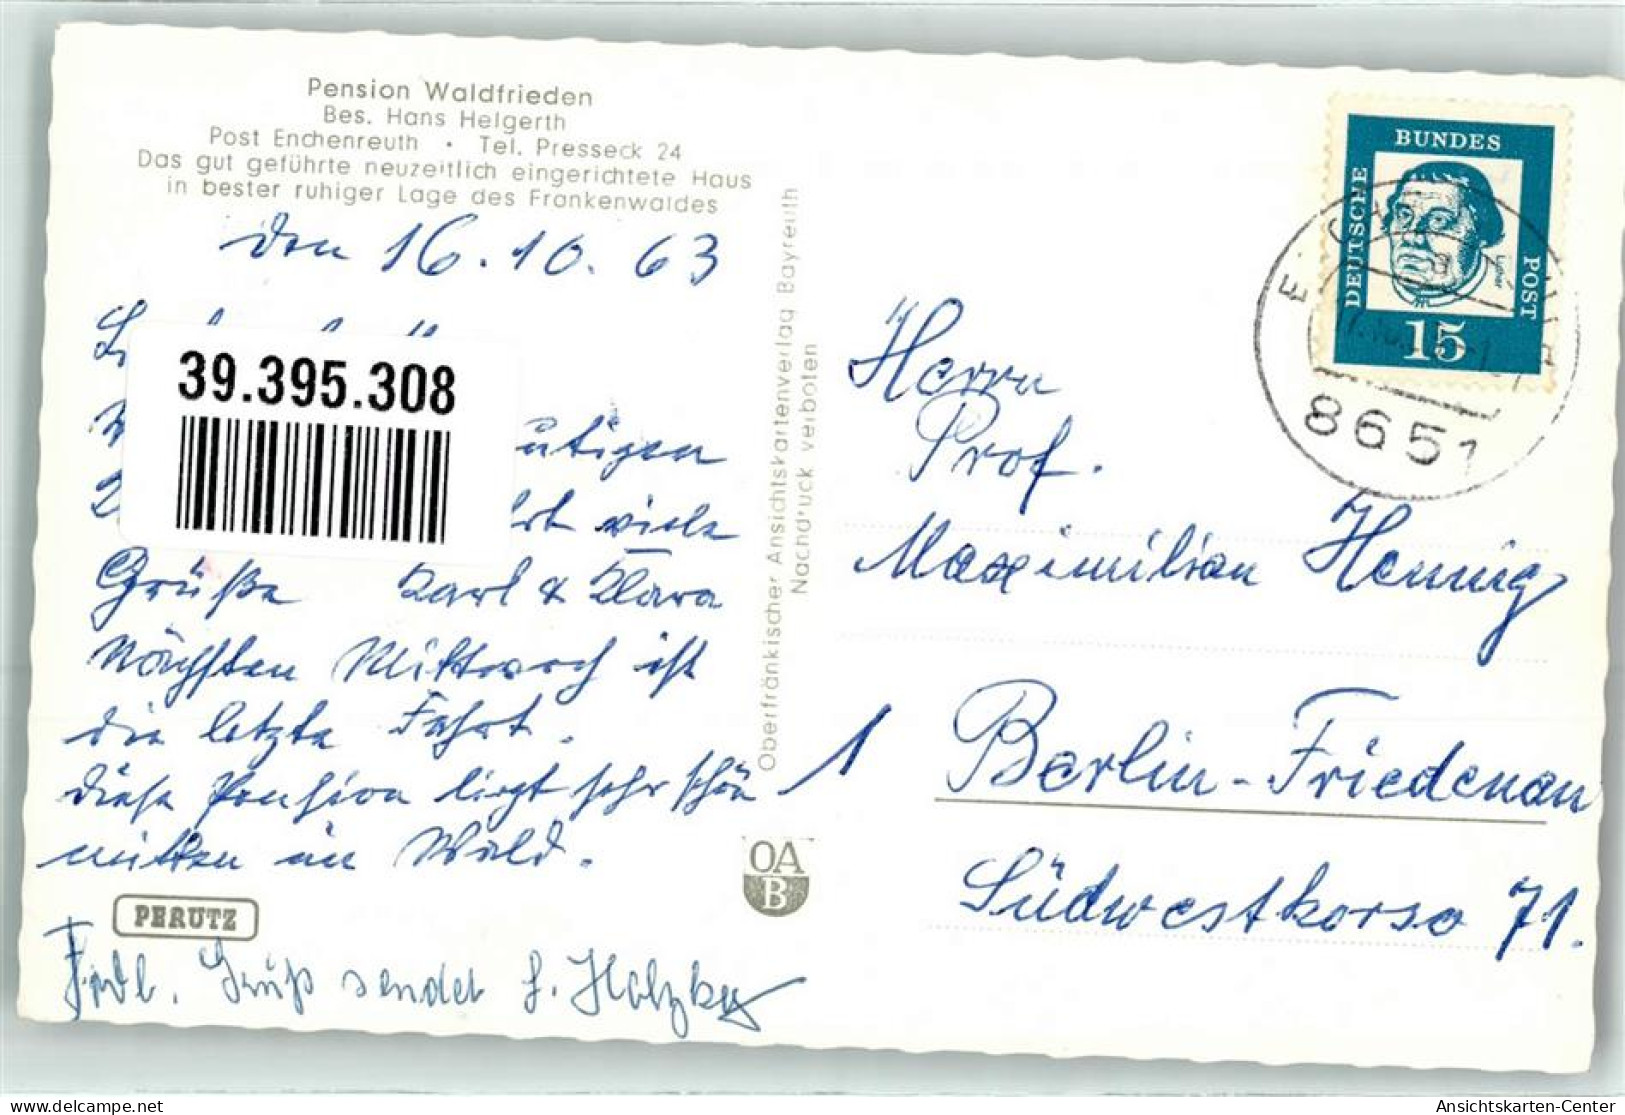 Pension Waldfrieden
Bes. Hans Helgerth
Post Enchenreuth · Tel. Presseck 24
Das gut geführte neuzeitlich eingerichtete Haus
in bester ruhiger Lage des Frankenwaldes
den 16.10.63
39.395.308
utigen
viele
Grüße Karl & Klara
Nächsten Mittwoch ist
die letzte Fahrt.
diese Pension liegt sehr schön
mitten im Wald.
PERUTZ
Frdl. Gruß sendet
Oberfränkischer Ansichtskartenverlag Bayreuth
Nachdruck verboten
OA
B
DEUTSCHE
BUNDES
POST
Luther
15
8651
Herrn
Prof.
Maximilian Hennig
1 Berlin-Friedenau
Südwestkorso 71.
Ansichtskarten-Center
delcampe.net